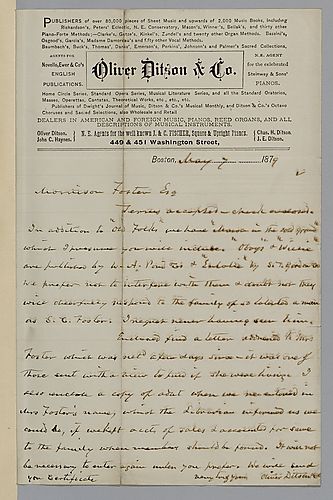 PUBLISHERS of over 80,000 pieces of Sheet Music and upwards of 2,000 Music Books, including
Richardson's, Peters' Eclectic, N. E. Conservatory, Mason's, Winner's, Bellak's, and thirty other
Piano-Forte Methods;—Clarke's, Getze's, Kinkel's, Zundel's and twenty other Organ Methods. Bassini's,
Osgood's, Garcia's, Madame Damoreau's and fifty other Vocal Methods.
Baumbach's, Buck's, Thomas', Danks', Emerson's, Perkins', Johnson's and Palmer's Sacred Collections,
AGENTS FOR
Novello, Ewer & Co's
ENGLISH
PUBLICATIONS.
Oliver Ditson & Co.
N. E. AGENTS
for the celebrated
Steinway & Sons'
PIANOS.
Home Circle Series, Standard Opera Series, Musical Literature Series, and all the Standard Oratorios,
Masses, Operettas, Cantatas, Theoretical Works, etc., etc., etc.
Publishers of Dwight's Journal of Music, Ditson & Co.'s Musical Monthly, and Ditson & Co.'s Octavo
Choruses and Sacred Selections, also Wholesale and Retail
DEALERS IN AMERICAN AND FOREIGN MUSIC, PIANOS, REED ORGANS, AND ALL
DESCRIPTIONS OF MUSICAL INSTRUMENTS.
Oliver Ditson.
John C. Haynes.
N. E. Agents for the well known J. & C. FISCHER, Square & Upright Pianos.
Chas. H. Ditson.
J. E. Ditson.
449 & 451 Washington Street,
Boston, May 7 1879
Morrison Foster Esq
Terms accepted & check enclosed.
In addition to "Old Folks" we have "Massa in the cold ground"
which I presume you will include. "Ellen Bayne" & "Willie"
are published by W. A. Pond & Co & "Eulalie" by S. T. Gordon &
we prefer not to interfere with them & doubt not they
will cheerfully respond to the family of so talented a man
as S. C. Foster. I regret never having seen him.
Enclosed find a letter addressed to Mrs
Foster which was recd a few days since. It was one of
those sent with a view to find if she was living. I
also enclose a copy of what when we entered in
Mrs Foster's name, which the Librarian informed us we
could be, if we kept accts of sales & accounts for same
to the family when members should be found. It will not
be necessary to enter again unless you prefer. We will send
you Certificate
very truly yours Oliver Ditson & Co